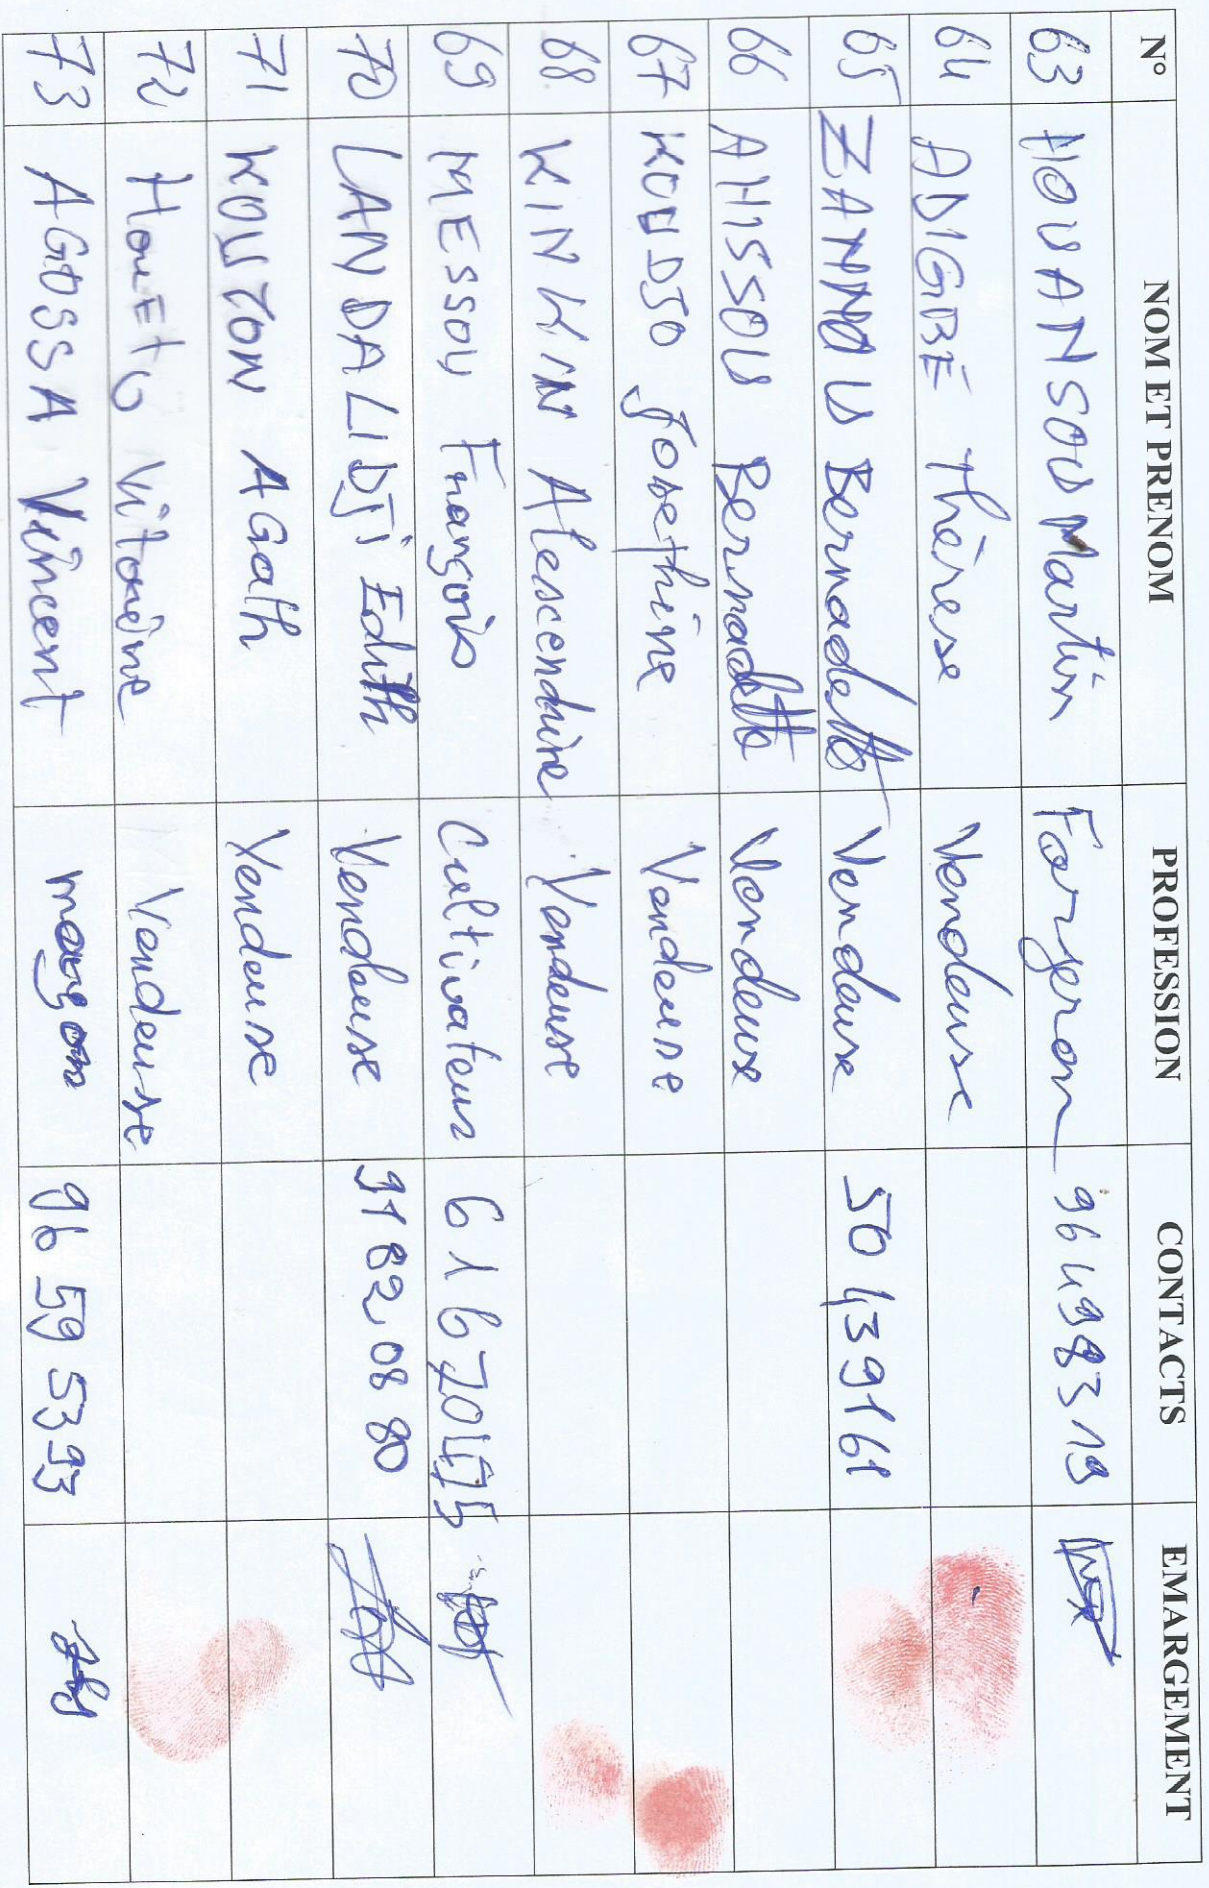 N° NOM ET PRENOM PROFESSION CONTACTS EMARGEMENT
63 HOUANSOU Martin Forgeron 96 49 83 19
64 ADIGBE Thérese Vendeuse
65 ZANNOU Bernadette Vendeuse 50 43 91 61
66 AHISSOU Bernadette Vendeuse
67 KOUDJO Josephine Vendeuse
68 KINKIN Alescendrine Vendeuse
69 MESSOU François Cultivateur 61 67 04 75
70 LANDALIDJi Edith Vendeuse 91 82 08 80
71 KOUTON AGath Vendeuse
72 HouETO Vitorine Vendeuse
73 AGOSSA Vincent maçon 96 59 53 93